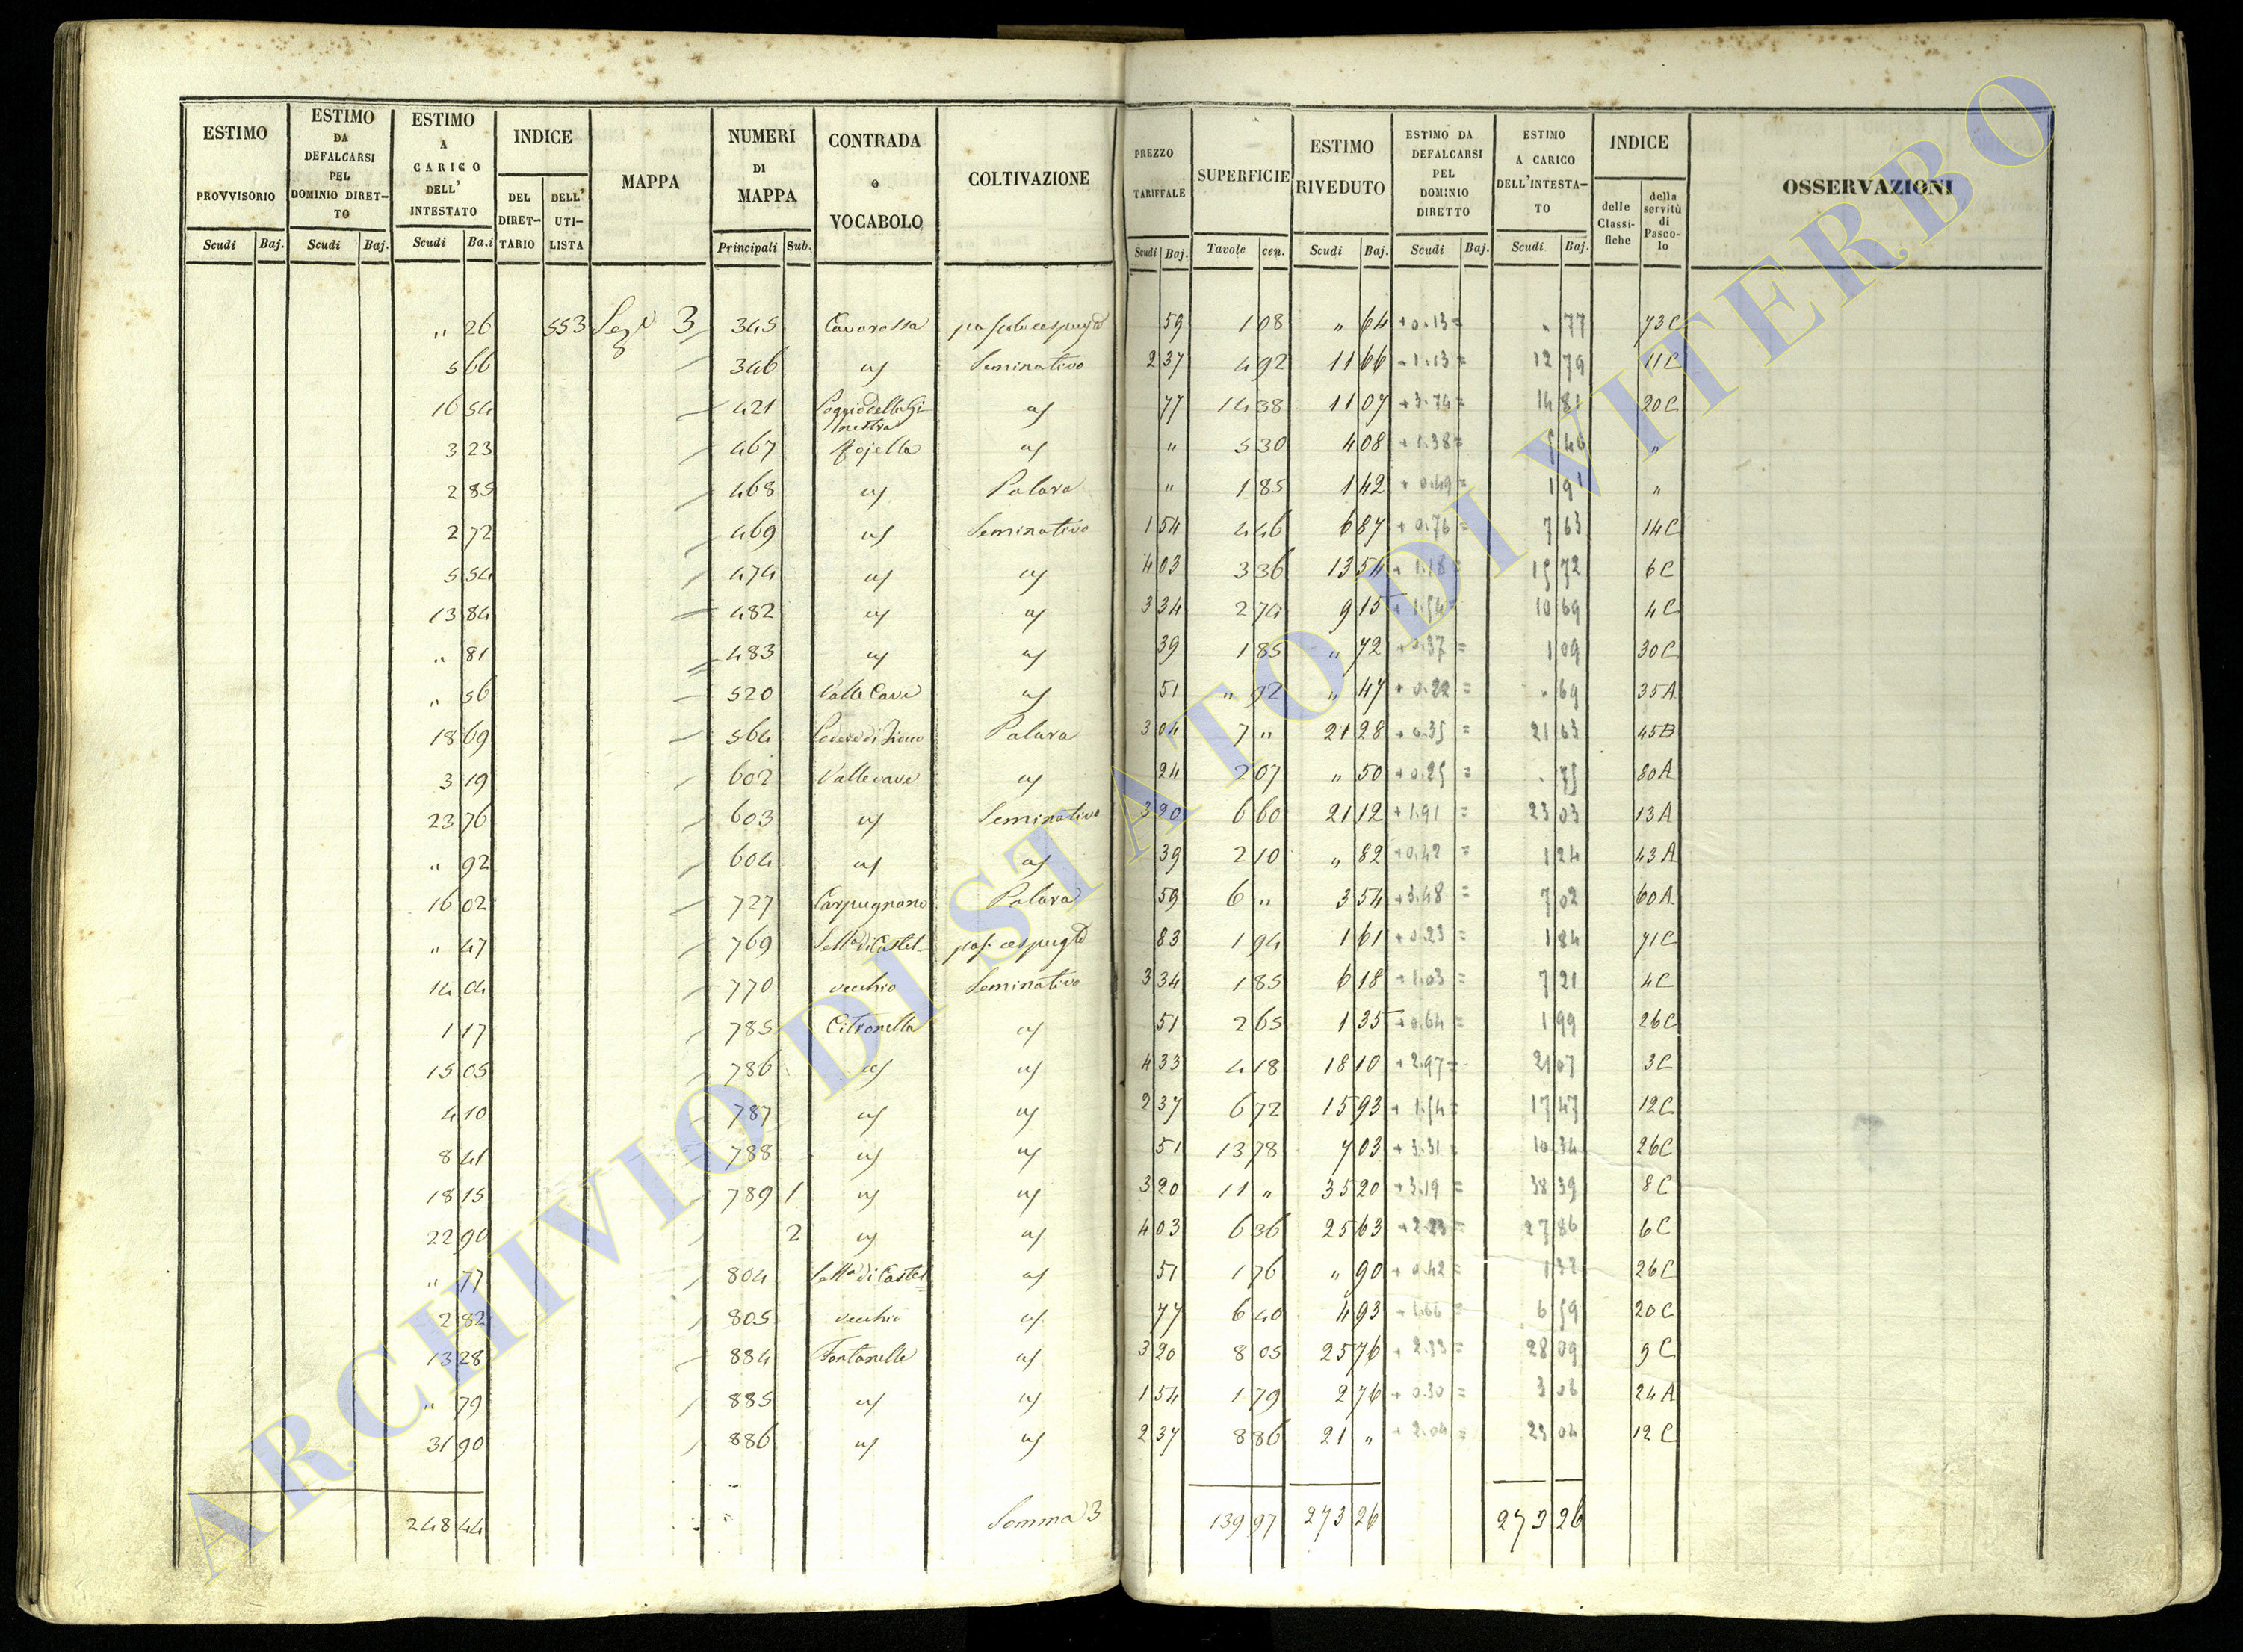 ESTIMO PROVVISORIO Scudi Baj. ESTIMO DA DEFALCARSI PEL DOMINIO DIRET-TO Scudi Baj. ESTIMO A CARICO DELL' INTESTATO Scudi Ba.i INDICE DEL DIRET-TARIO DELL' UTI-LISTA MAPPA NUMERI DI MAPPA Principali Sub. CONTRADA o VOCABOLO COLTIVAZIONE PREZZO TARIFFALE Scudi Baj. SUPERFICIE Tavole cen. ESTIMO RIVEDUTO Scudi Baj. ESTIMO DA DEFALCARSI PEL DOMINIO DIRETTO Scudi Baj. ESTIMO A CARICO DELL'INTESTA-TO Scudi Baj. INDICE delle Classi-fiche della servitù di Pasco-lo OSSERVAZIONI
" 26 553 3 345 Cavarossa 59 1 08 " 64 + 0.13 = " 77 73C
5 66 346 Seminativo 2 37 4 92 11 66 1.13 = 12 79 11C
16 54 421 77 14 38 11 07 + 3.74 = 14 81 20C
3 23 467 " 5 30 4 08 + 1.38 = 5 46 "
2 85 468 " 1 85 1 42 + 0.49 = 1 91 "
2 72 469 Seminativo 1 54 4 46 6 87 + 0.76 = 7 63 14C
5 54 474 4 03 3 36 13 54 + 1.18 = 15 72 6C
13 84 482 3 34 2 74 9 15 + 1.54 10 69 4C
" 81 483 39 1 85 " 72 + 0.37 = 1 09 30C
" 56 520 Valle Cave 51 " 92 " 47 + 0.22 = " 69 35A
18 69 564 3 04 7 " 21 28 + 0.35 = 21 63 45B
3 19 602 Vallecave 24 2 07 " 50 + 0.25 = " 75 80A
23 76 603 Seminativo 3 20 6 60 21 12 + 1.91 = 23 03 13A
" 92 604 39 2 10 " 82 + 0.42 = 1 24 43A
16 02 727 Carpugnano 59 6 " 3 54 + 3.48 = 7 02 60A
" 47 769 83 1 94 1 61 + 0.23 = 1 84 71C
14 04 770 vecchio Seminativo 3 34 1 85 6 18 + 1.03 = 7 21 4C
1 17 785 Citronella 51 2 65 1 35 + 0.64 = 1 99 26C
15 05 786 4 33 4 18 18 10 + 2.97 = 21 07 3C
4 10 787 2 37 6 72 15 93 + 1.54 = 17 47 12C
8 41 788 51 13 78 7 03 + 3.31 = 10 34 26C
18 15 789 1 3 20 11 " 35 20 + 3.19 = 38 39 8C
22 90 2 4 03 6 36 25 63 + 2.23 = 27 86 6C
" 77 804 51 1 76 " 90 + 0.42 = 1 32 26C
2 82 805 vecchio 77 6 40 4 93 + 1.66 = 6 59 20C
13 28 884 Fontanelle 3 20 8 05 25 76 + 2.33 = 28 09 9C
" 79 885 1 54 1 79 2 76 + 0.30 = 3 06 24A
31 90 886 2 37 8 86 21 " + 2.04 = 23 04 12C
248 44 Somma 3 139 97 273 26 273 26
ARCHIVIO DI STATO DI VITERBO